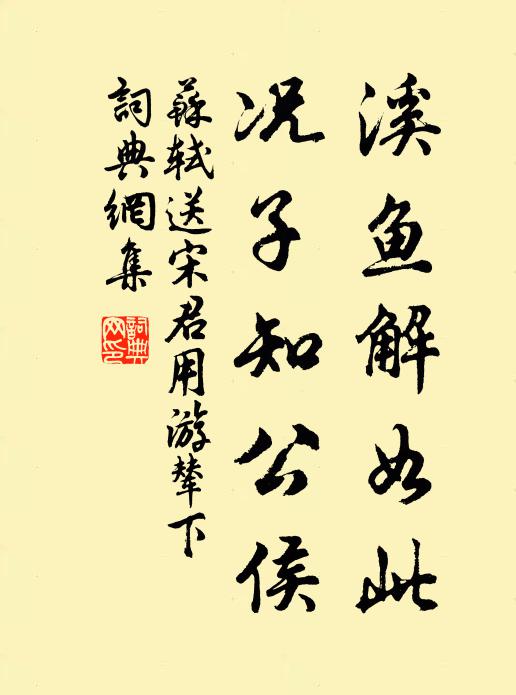 溪鱼解如此
况子知公侯
蘇軾送宋君用游辇下
詞典網集
詞典网印